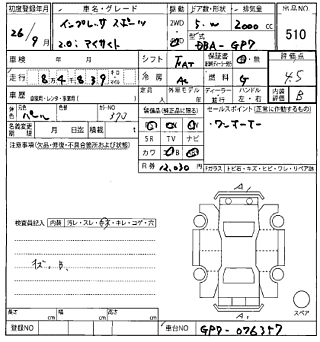 初度登録年月 車名・グレード 駆動 ドア数・形状 排気量 出品NO
26/9月 インプレッサスポーツ 2WD 5・W 2000cc 510
2.0i アイサイト 型式 DBA-GP7
車検 年 月 シフト FAT 保証書 評価点
走行 8万4千8百3 9 冷房 AC 燃料 G 4.5
車歴 自家用・レンタ・事業用 外装モデル ディーラー 並行 ハンドル 左・右 内装評価 B
色 パール カラーNO 370
装備品(純正品に限る) セールスポイント(正常に作動するもの)
名義変更期限 月 日迄 積載 t
SR TV ナビ ・ワンオーナー
注意事項(欠品・修復・不具合箇所および状態)
カワ
R券 12,030円
Fガラス トビ石・キズ・ヒビ・ワレ・リペア跡
検査員記入 内装 汚レ・スレ・キズ・キレ・コゲ・穴
キズ、B、
A1
スペア
長さ cm 幅 cm 高さ cm
登録NO 車台NO GP7-076357